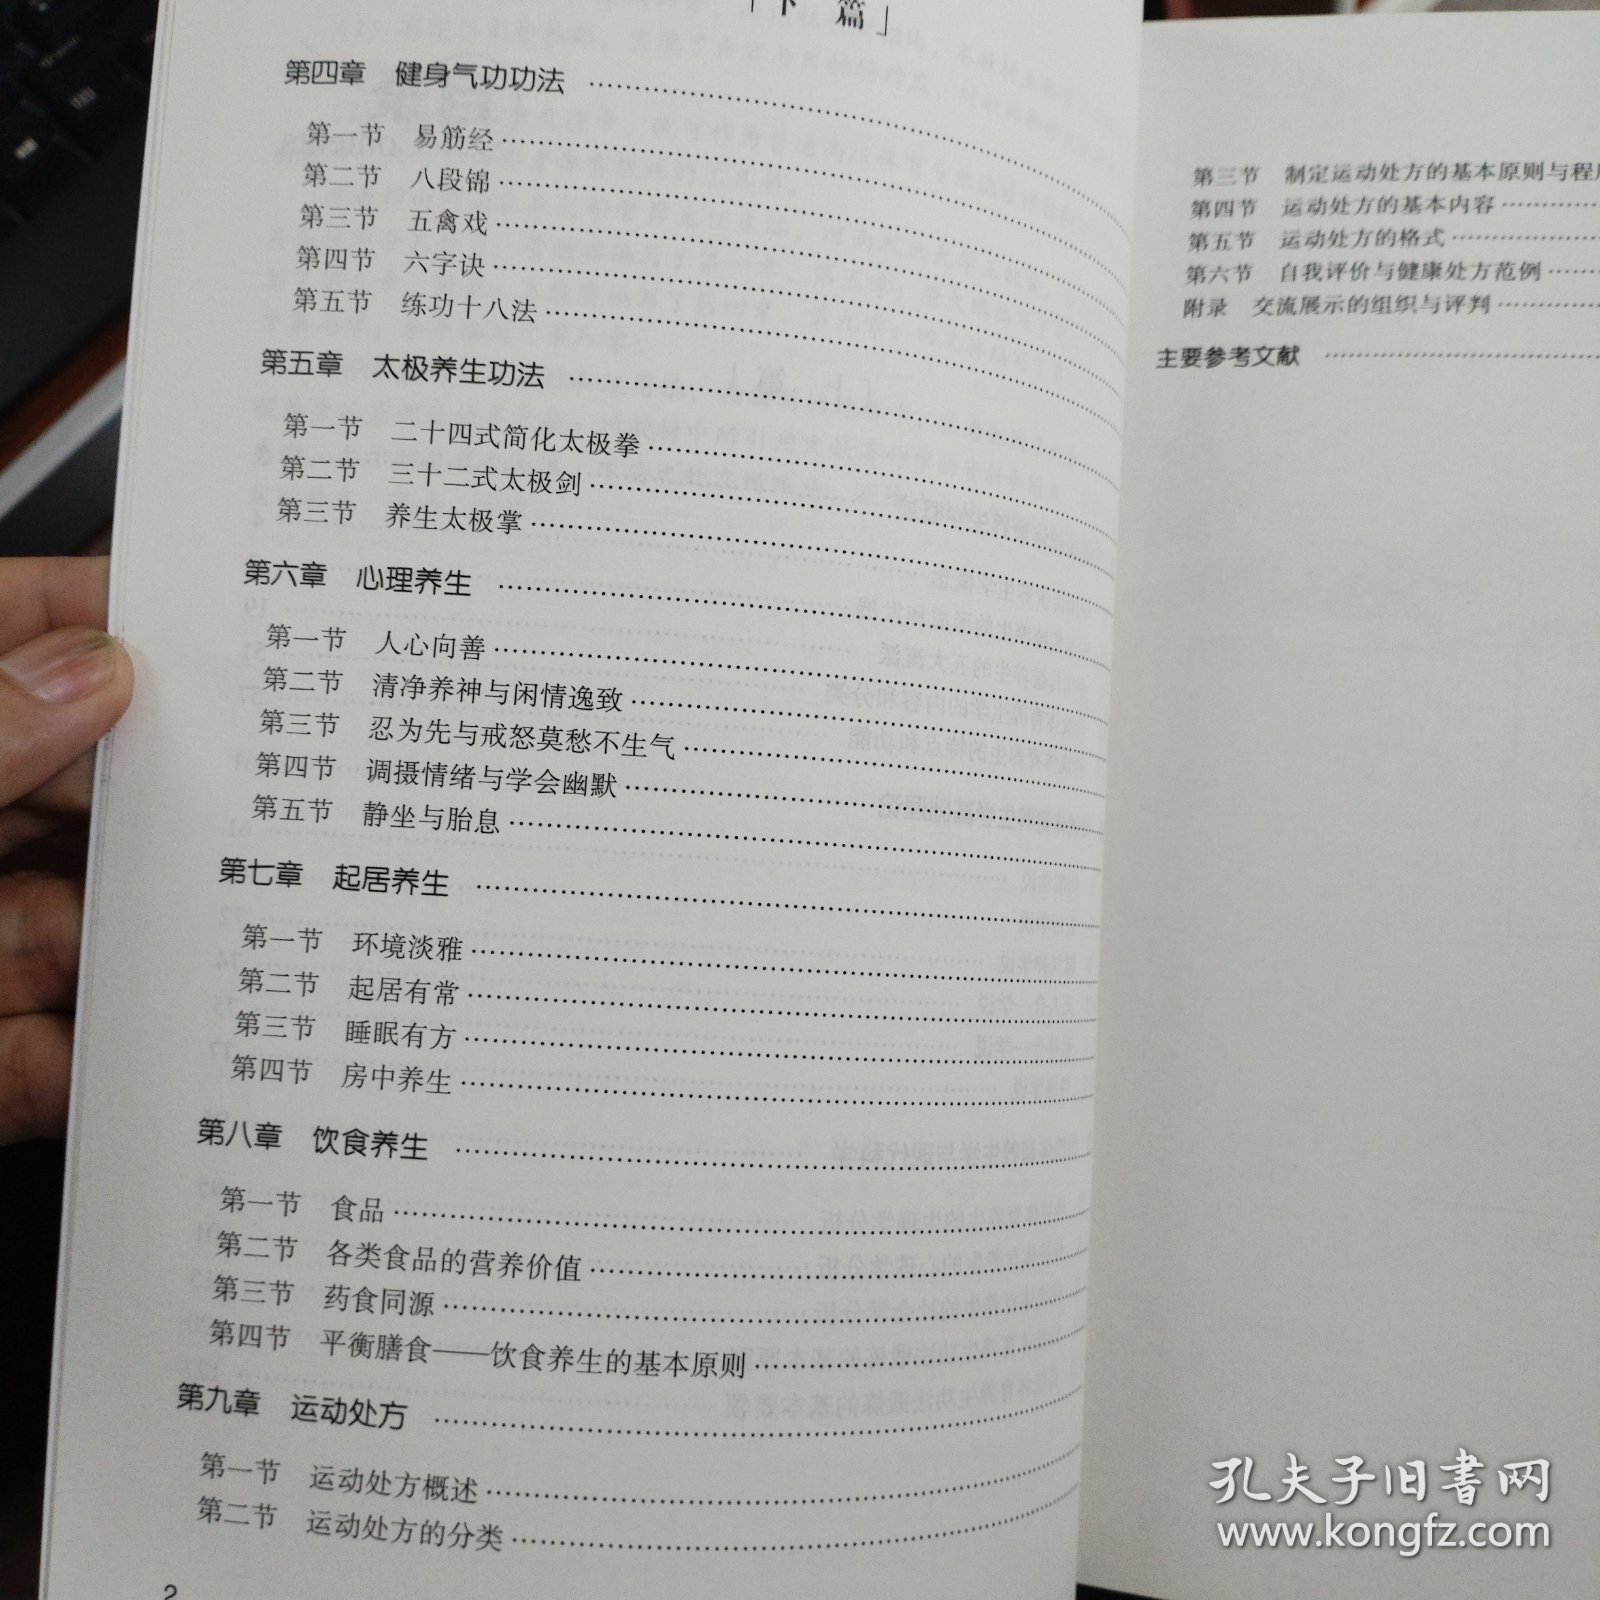 「下　篇」
第四章　健身气功功法
第一节　易筋经
第二节　八段锦
第三节　五禽戏
第四节　六字诀
第五节　练功十八法
第五章　太极养生功法
第一节　二十四式简化太极拳
第二节　三十二式太极剑
第三节　养生太极掌
第六章　心理养生
第一节　人心向善
第二节　清净养神与闲情逸致
第三节　忍为先与戒怒莫愁不生气
第四节　调摄情绪与学会幽默
第五节　静坐与胎息
第七章　起居养生
第一节　环境淡雅
第二节　起居有常
第三节　睡眠有方
第四节　房中养生
第八章　饮食养生
第一节　食品
第二节　各类食品的营养价值
第三节　药食同源
第四节　平衡膳食——饮食养生的基本原则
第九章　运动处方
第一节　运动处方概述
第二节　运动处方的分类
2
第三节　制定运动处方的基本原则与程
第四节　运动处方的基本内容
第五节　运动处方的格式
第六节　自我评价与健康处方范例
附录　交流展示的组织与评判
主要参考文献
孔夫子旧书网
www.kongfz.com